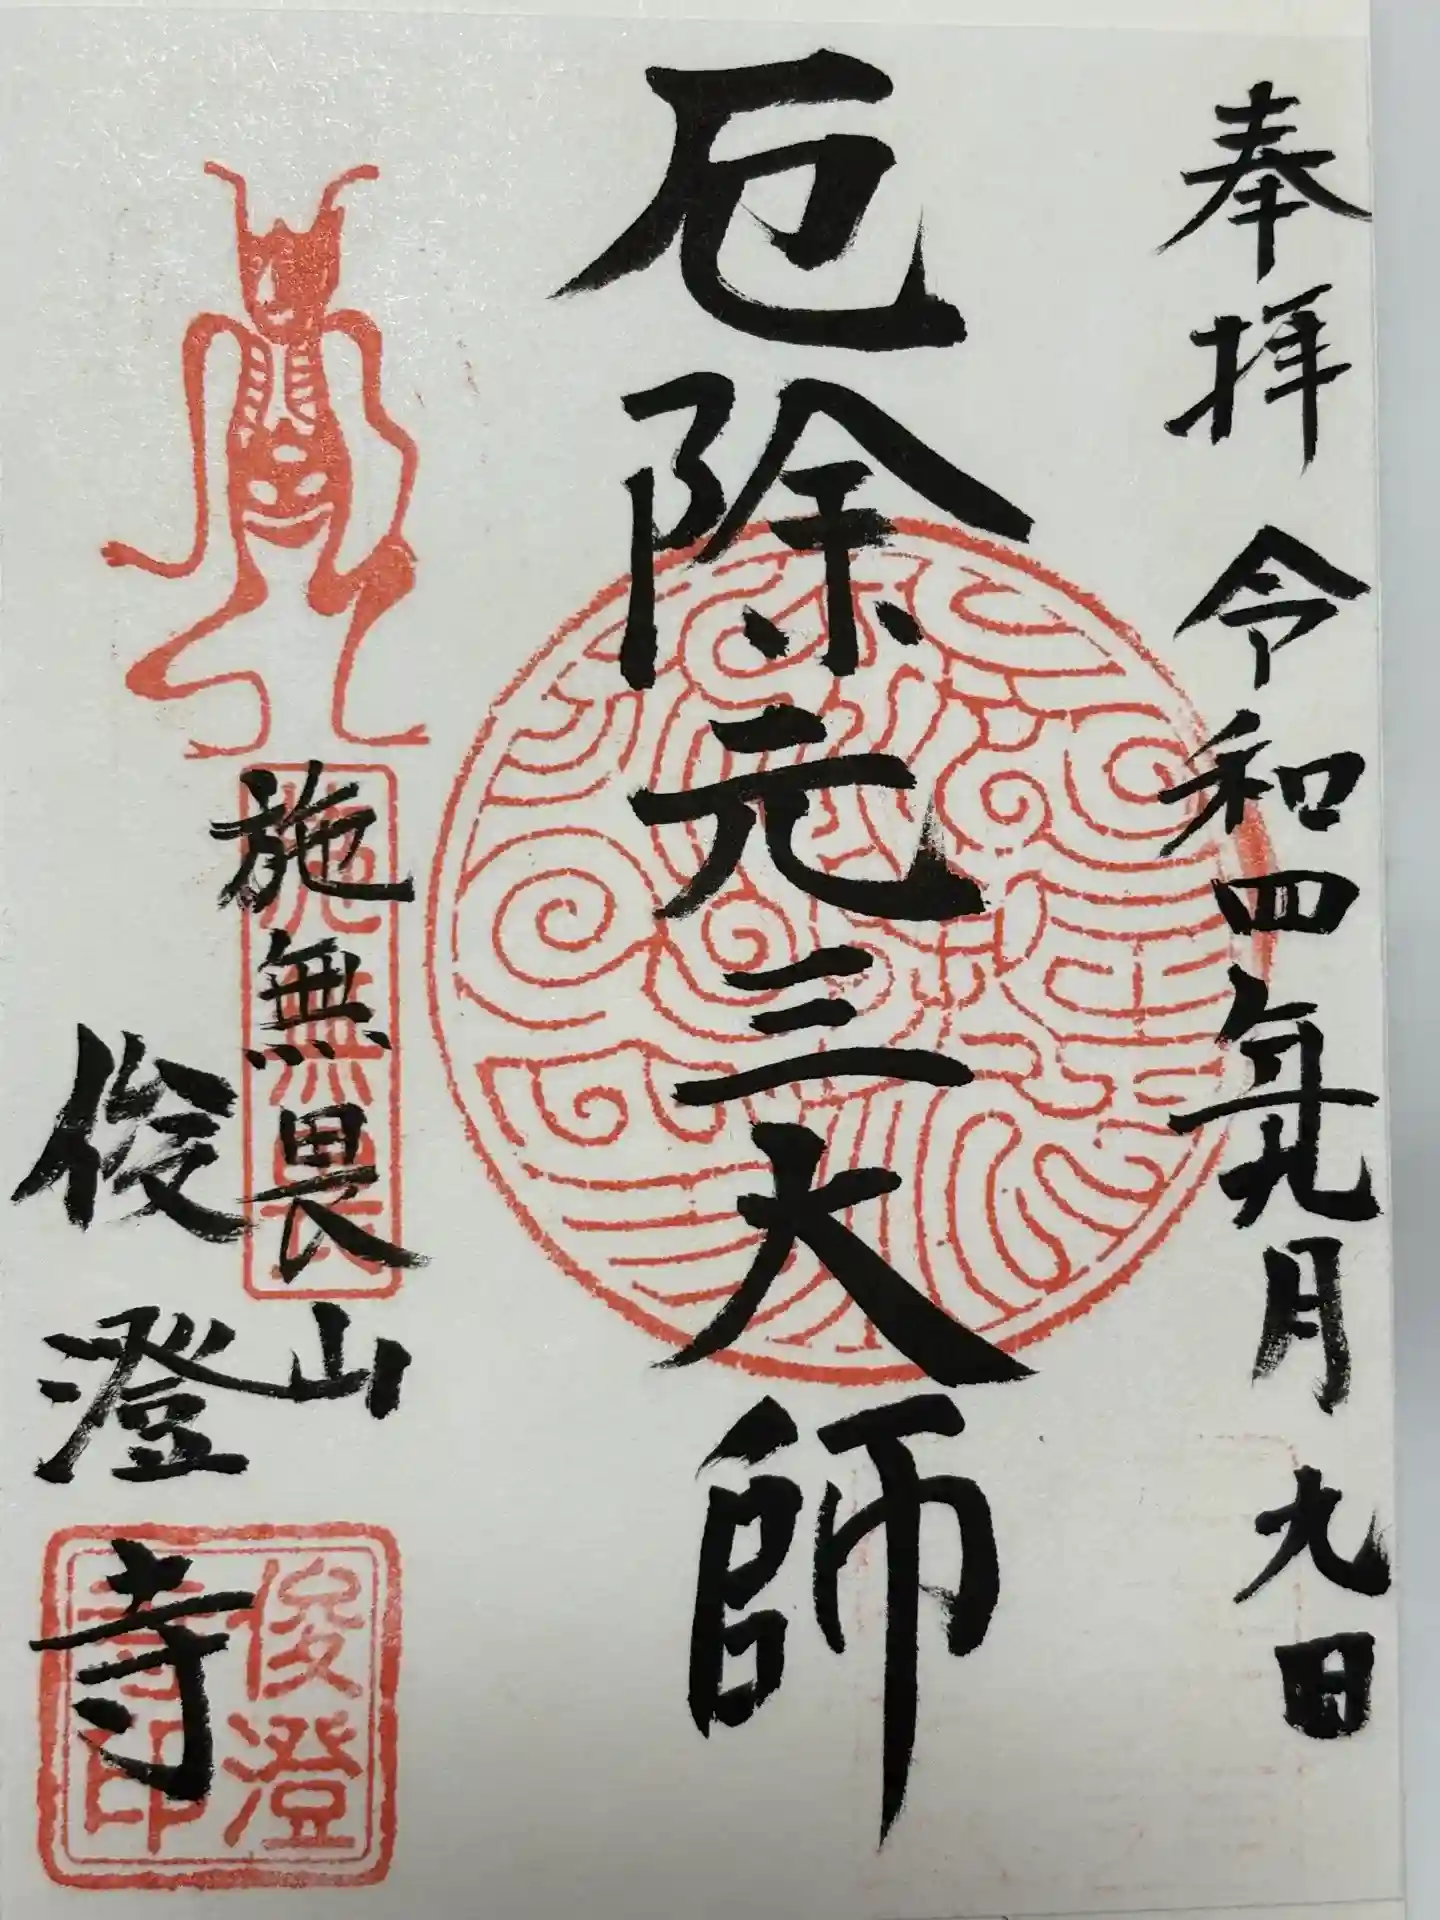 奉拝 令和四年九月九日
厄除元三大師
施無畏山
俊澄寺
施無畏
俊澄
寺印